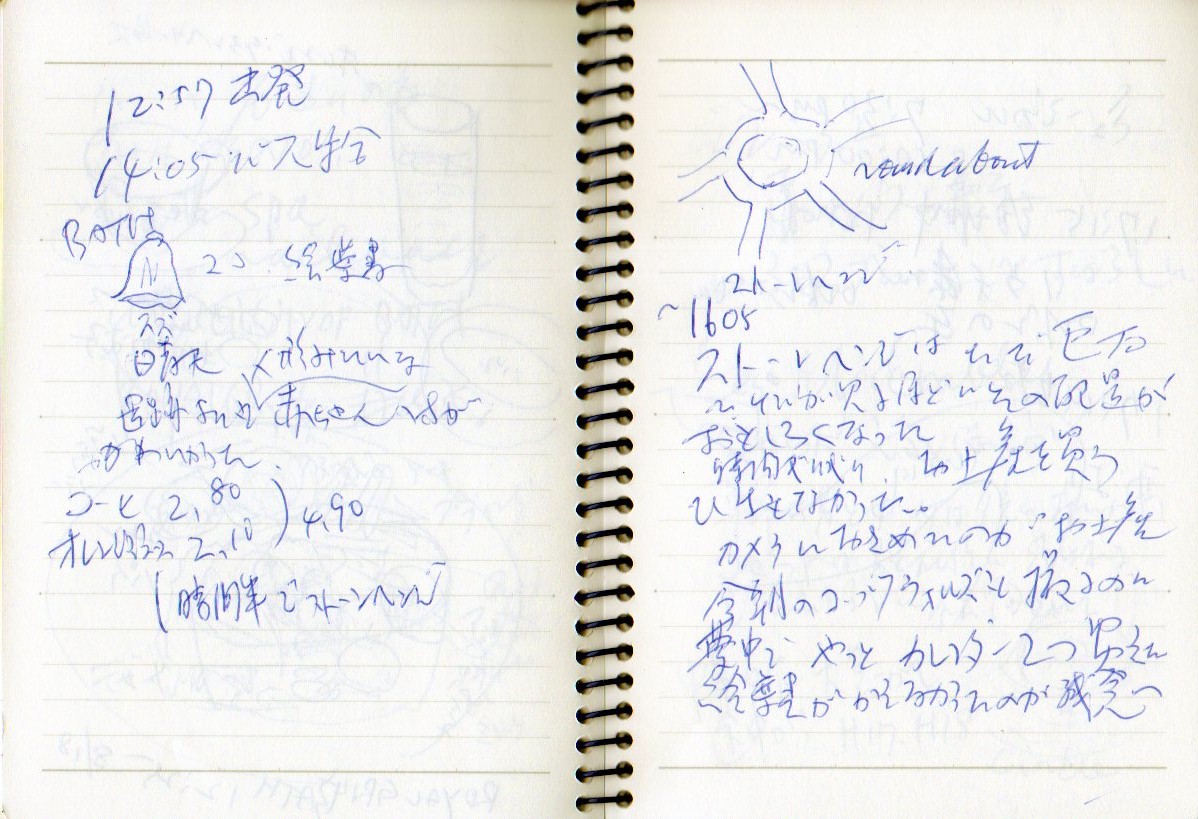 12:57 出発
14:05 バス集合
BATH
N
2コ 絵葉書
スズ
晴天 人形みたいな
赤ちゃん
かわいかった.
コーヒ 2,80
オレンジジュース 2,10 ) 4,90
1時間半でストーンヘンジ
roundabout
ストーンヘンジ
~1605
ストーンヘンジは
配置が
おもしろくなった
時間ぎりぎり お土産を買う
ひまもなかった。
カメラにおさめたのがお土産
今朝のコッツウォルズも撮るのに
夢中で やっと カレンダー2つ 買えた
絵葉書がかえなかったのが残念